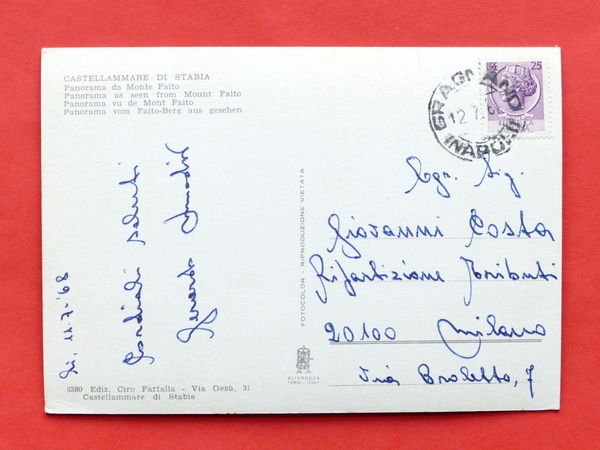 CASTELLAMMARE DI STABIA
Panorama da Monte Faito
Panorama as seen from Mount Faito
Panorama vu de Mont Faito
Panorama vom Faito-Berg aus gesehen
11-7-'68
Cordiali saluti
Gerardo
6380 Ediz. Ciro Farfalla - Via Gesù, 31
Castellammare di Stabia
FOTOCOLOR - RIPRODUZIONE VIETATA
ALTEROCCA
TERNI - ITALY
25
GRAGNANO
12.7.6
(NAPOLI)
Egr. Sig.
Giovanni Costa
Ripartizione Tributi
20100 Milano
Via Broletto, 7